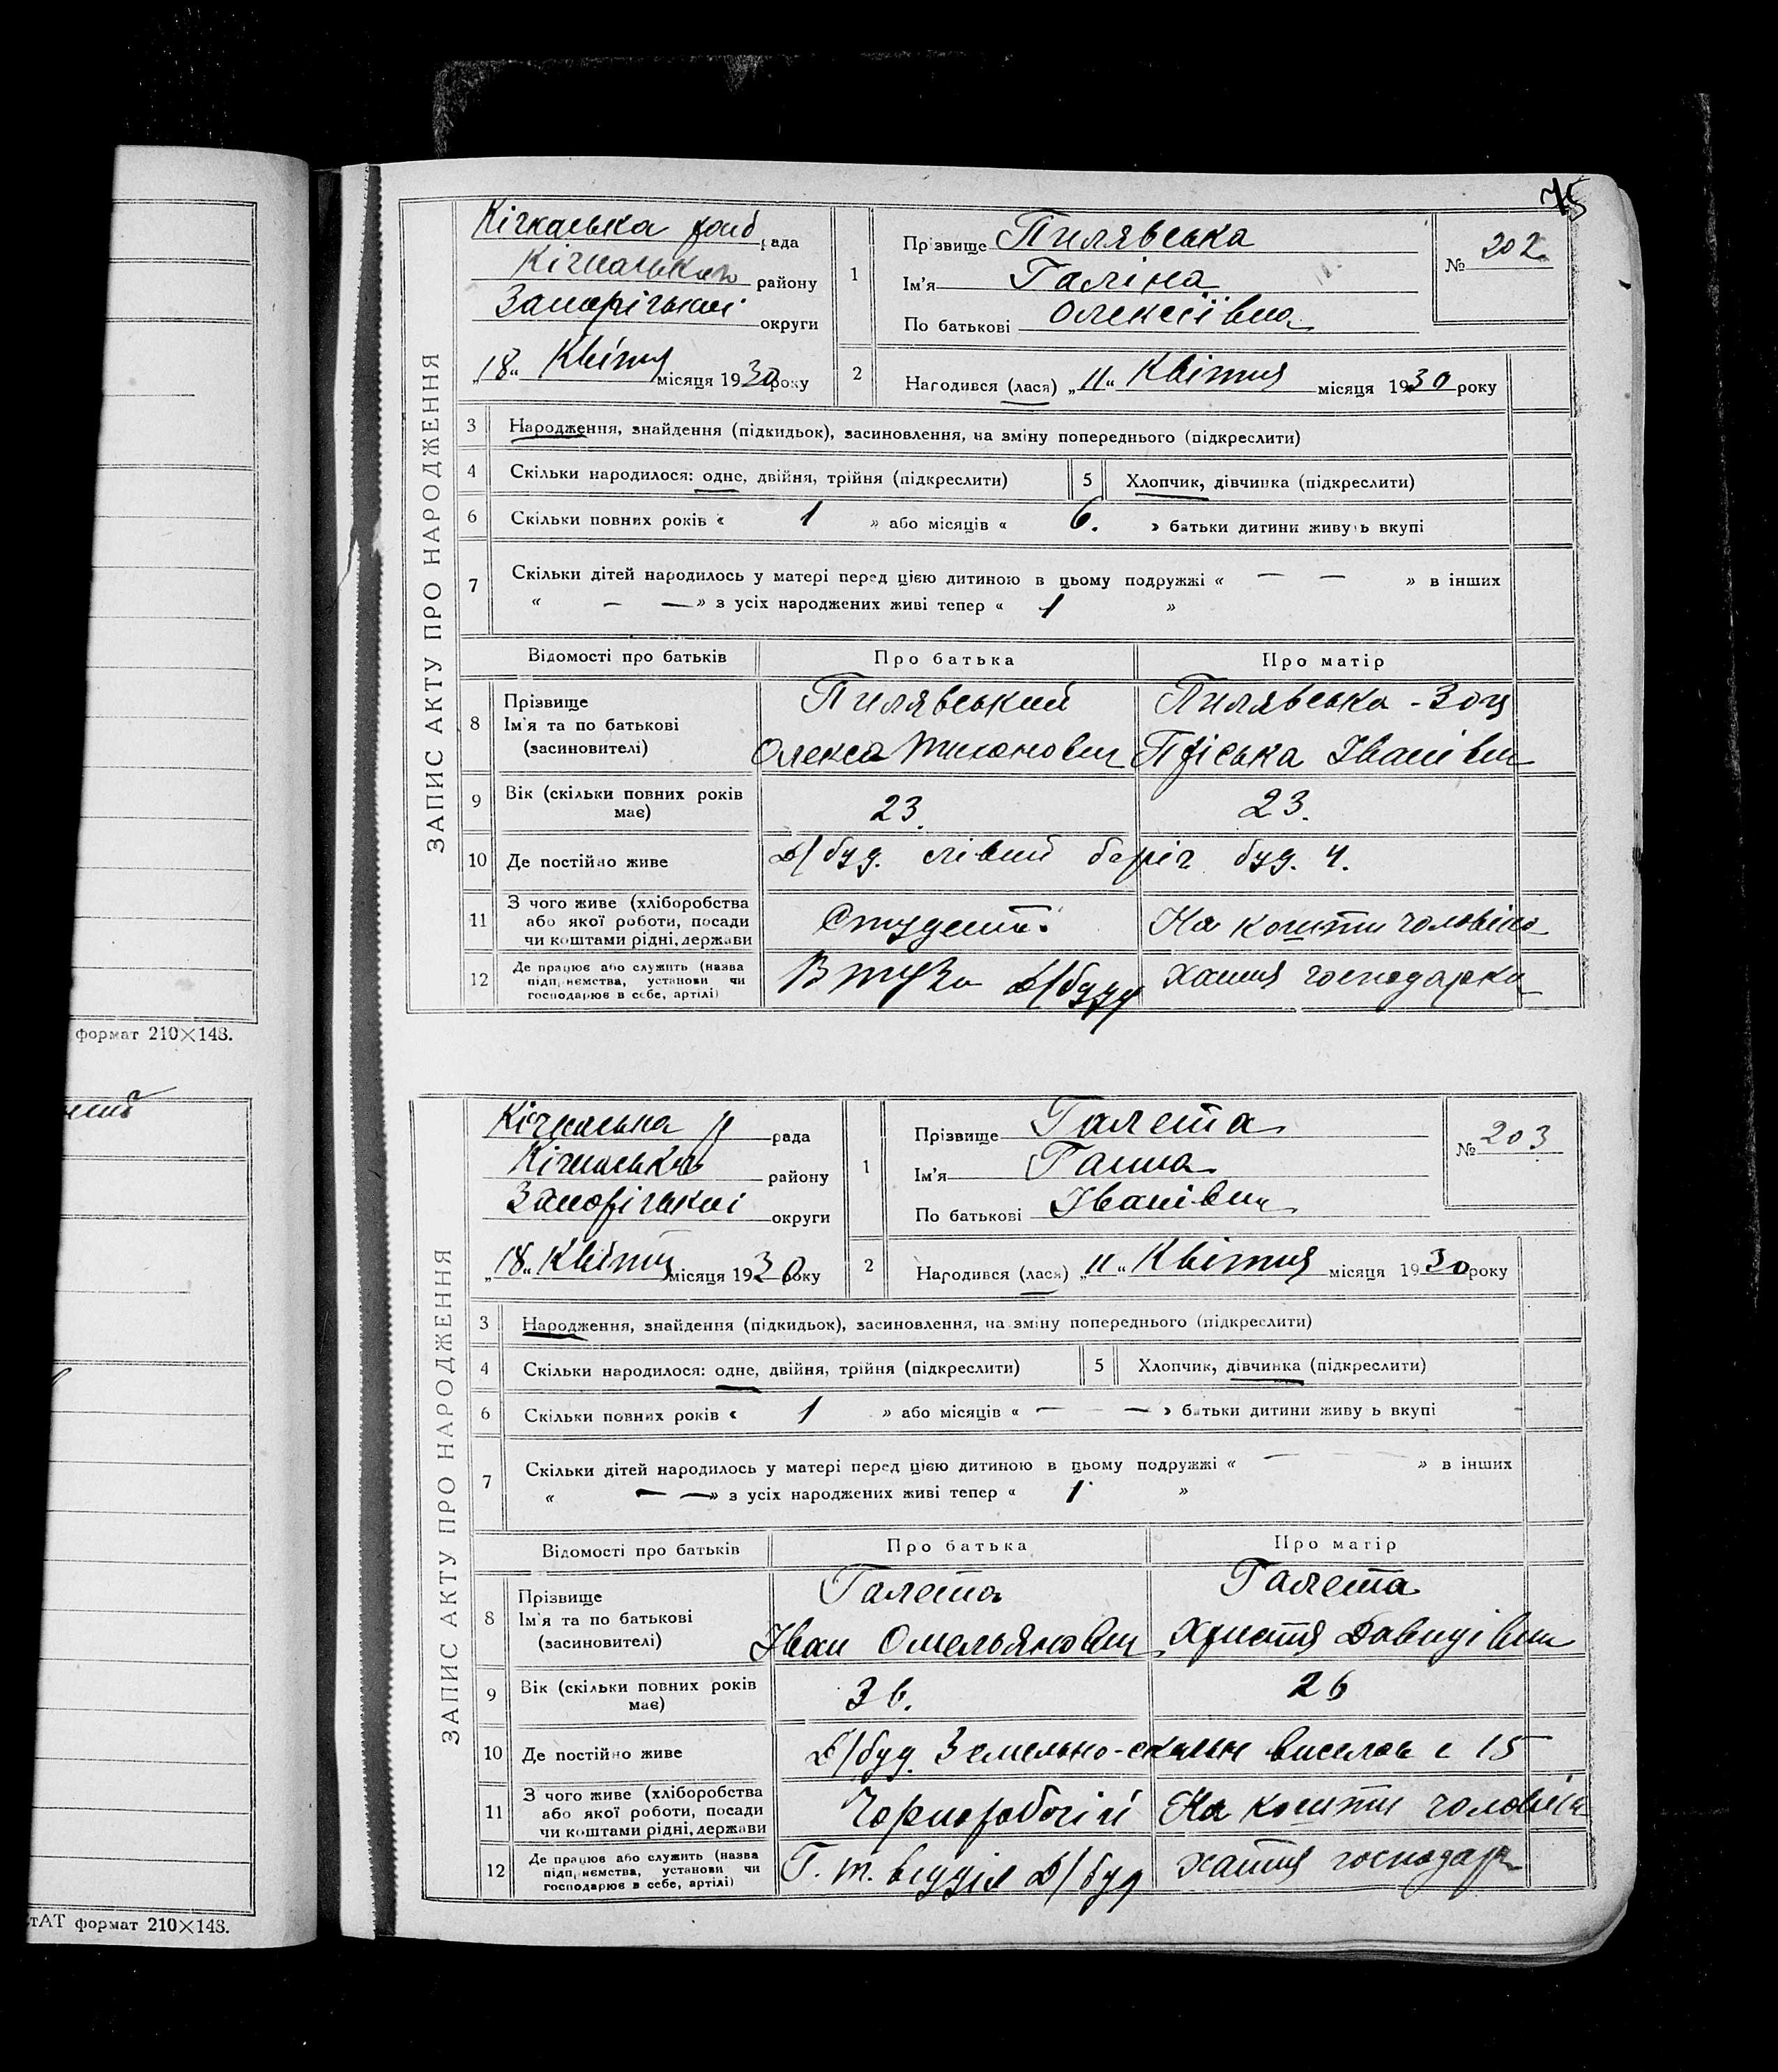 75
ЗАПИС АКТУ ПРО НАРОДЖЕННЯ
Кічкаська рада
Кічкаськ району
Запорізької округи
„18“ Квітня місяця 1930 року
1
Прізвище Пилявська
Ім'я Галіна
По батькові Олексіївна
№ 202
2 Народився (лася) „11“ Квітня місяця 1930 року
3 Народження, знайдення (підкидьок), засиновлення, на зміну попереднього (підкреслити)
4 Скільки народилося: одне, двійня, трійня (підкреслити) 5 Хлопчик, дівчинка (підкреслити)
6 Скільки повних років « 1 » або місяців « 6. » батьки дитини живуть вкупі
7 Скільки дітей народилось у матері перед цією дитиною в цьому подружжі « — — » в інших
« — — » з усіх народжених живі тепер « 1 »
Відомості про батьків Про батька Про матір
8 Прізвище Ім'я та по батькові (засиновителі)
Пилявський Пилявська -
Олекса Тихонович Пріська Іванівна
9 Вік (скільки повних років має) 23. 23.
10 Де постійно живе Д/буд. лівий беріг буд. 4.
11 З чого живе (хліборобства або якої роботи, посади чи коштами рідні, держави Студент. На кошти чоловіка
12 Де працює або служить (назва підприємства, установи чи господарює в себе, артілі) Д/буду хатня господарка
формат 210×148.
ЗАПИС АКТУ ПРО НАРОДЖЕННЯ
Кічкаська р рада
Кічкаськ району
Запорізької округи
„18“ Квітня місяця 1930 року
1
Прізвище Галета
Ім'я Ганна
По батькові Іванівна
№ 203
2 Народився (лася) „11“ Квітня місяця 1930 року
3 Народження, знайдення (підкидьок), засиновлення, на зміну попереднього (підкреслити)
4 Скільки народилося: одне, двійня, трійня (підкреслити) 5 Хлопчик, дівчинка (підкреслити)
6 Скільки повних років « 1 » або місяців « — — » батьки дитини живуть вкупі
7 Скільки дітей народилось у матері перед цією дитиною в цьому подружжі « — » в інших
« — — » з усіх народжених живі тепер « 1 »
Відомості про батьків Про батька Про матір
8 Прізвище Ім'я та по батькові (засиновителі)
Галета Галета
Іван Омельянович Христя Давидівна
9 Вік (скільки повних років має) 36. 26
10 Де постійно живе Д/буд. Земельно-скельн виселок 15
11 З чого живе (хліборобства або якої роботи, посади чи коштами рідні, держави Чорноробочій На кошти чоловіка
12 Де працює або служить (назва підприємства, установи чи господарює в себе, артілі) Г. т. відділ Д/буд хатня господар
тАТ формат 210×148.